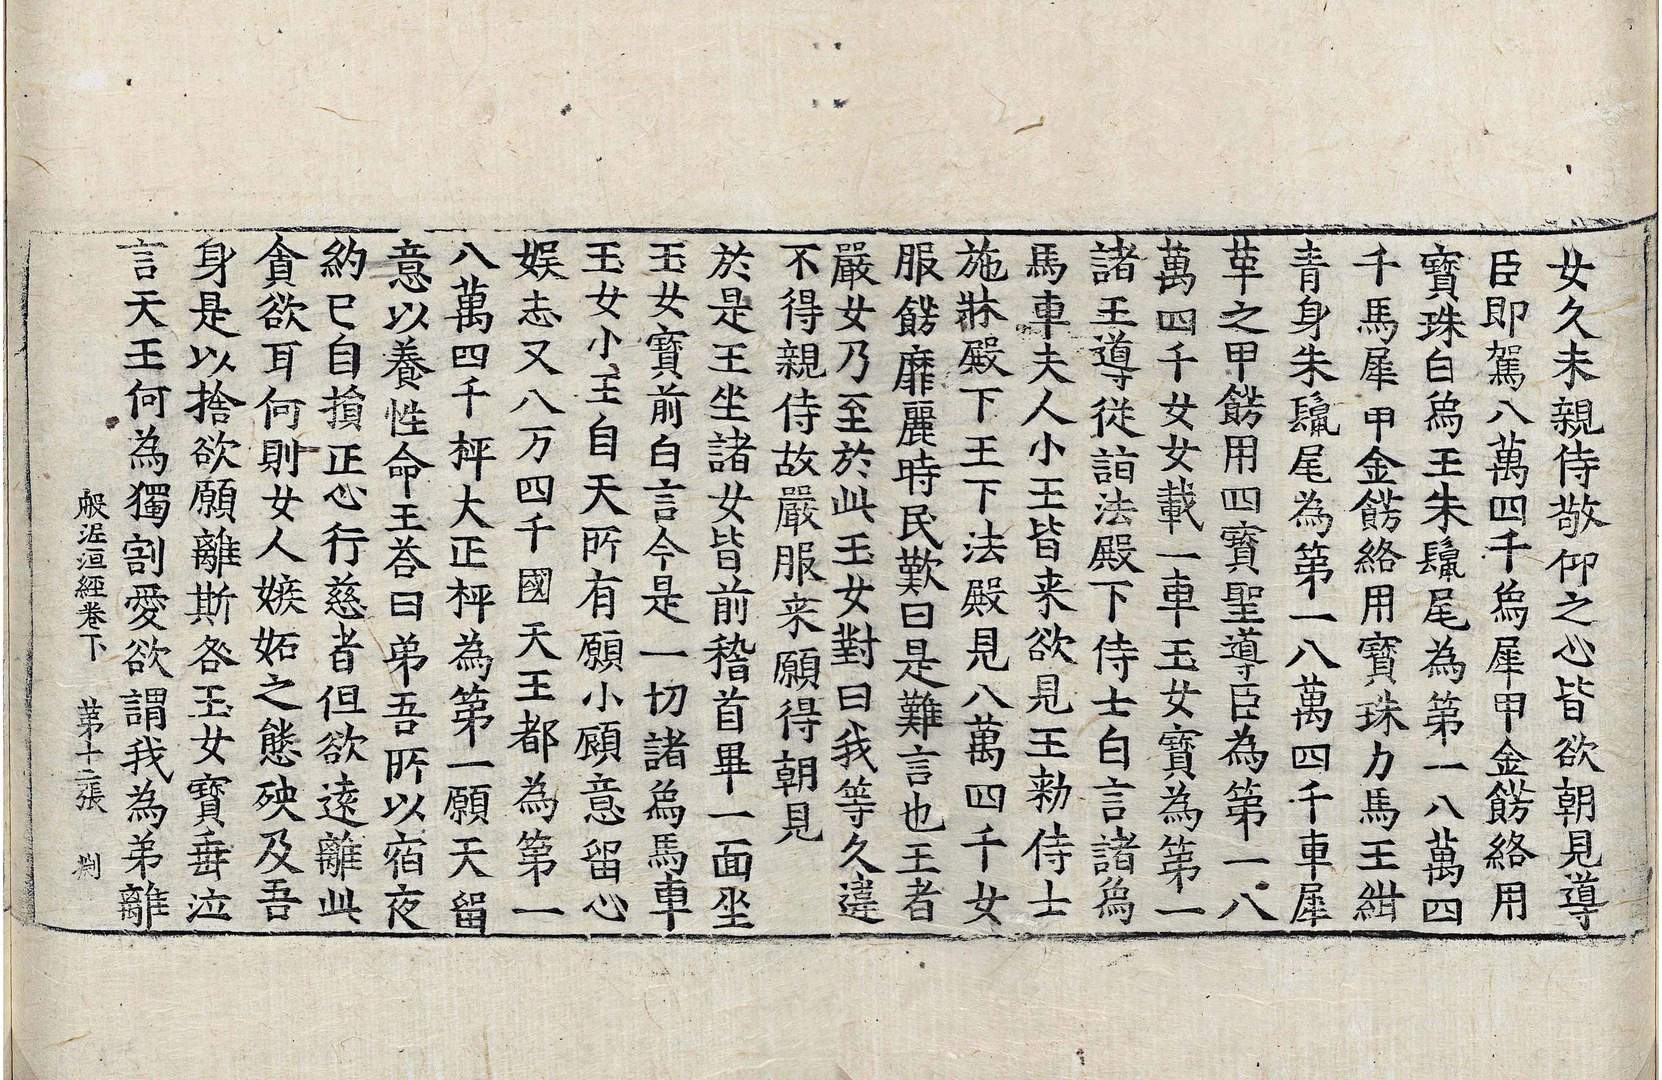 女久未親侍敬仰之心皆欲朝見導
臣即駕八萬四千烏犀甲金餝絡用
寶珠白烏王朱鬣尾為第一八萬四
千馬犀甲金餝絡用寶珠力馬王紺
青身朱鬣尾為第一八萬四千車犀
革之甲餝用四寶聖導臣為第一八
萬四千女女載一車玉女寶為第一
諸王導從詣法殿下侍士白言諸烏
馬車夫人小王皆来欲見王勑侍士
施牀殿下王下法殿見八萬四千女
服餝靡麗時民歎曰是難言也王者
嚴女乃至於此玉女對曰我等久違
不得親侍故嚴服来願得朝見
於是王坐諸女皆前稽首畢一面坐
玉女寶前白言今是一切諸烏馬車
玉女小王自天所有願小顧意留心
娱志又八万四千國天王都為第一
八萬四千枰大正枰為第一願天留
意以養性命王荅曰弟吾所以宿夜
約已自損正心行慈者但欲遠離此
貪欲耳何則女人嫉妬之態殃及吾
身是以捨欲願離斯咎玉女寶垂泣
言天王何為獨割愛欲謂我為弟離
般泥洹經卷下 第十二張 㓨